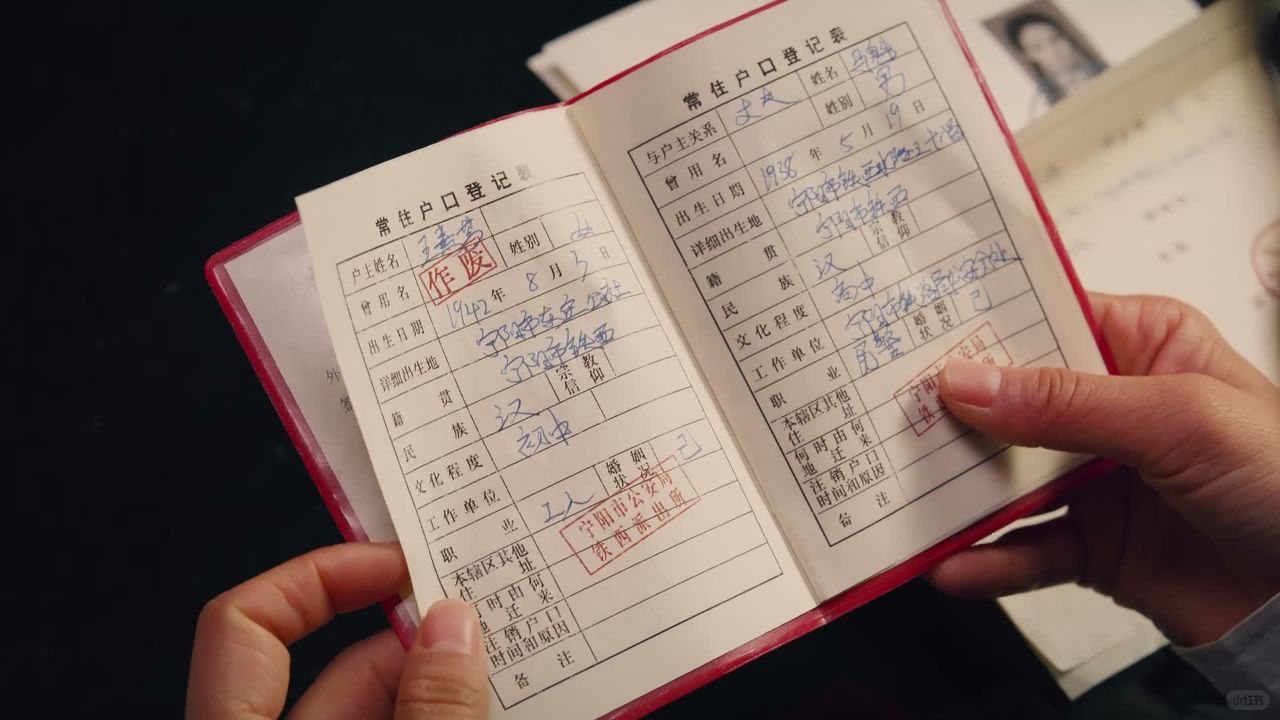 常住户口登记表
户主姓名
作废
姓别 女
曾用名
出生日期 1942年8月3日
详细出生地 宁阳市东安公社
籍贯 宁阳市铁西
宗教信仰
民族 汉
文化程度 高中
工作单位
婚姻状况 已
职业 工人
宁阳市公安局
铁西派出所
本辖区其他住址
何时由何地迁来
注销户口时间和原因
备注
常住户口登记表
与户主关系 丈夫
姓名
曾用名
姓别 男
出生日期 1938年5月19日
详细出生地
籍贯 宁阳市铁西
宗教信仰
民族 汉
文化程度 高中
工作单位
婚姻状况 已
职业 民警
宁阳市公安局
铁
本辖区其他住址
何时由何地迁来
注销户口时间和原因
备注
外
签
小红书